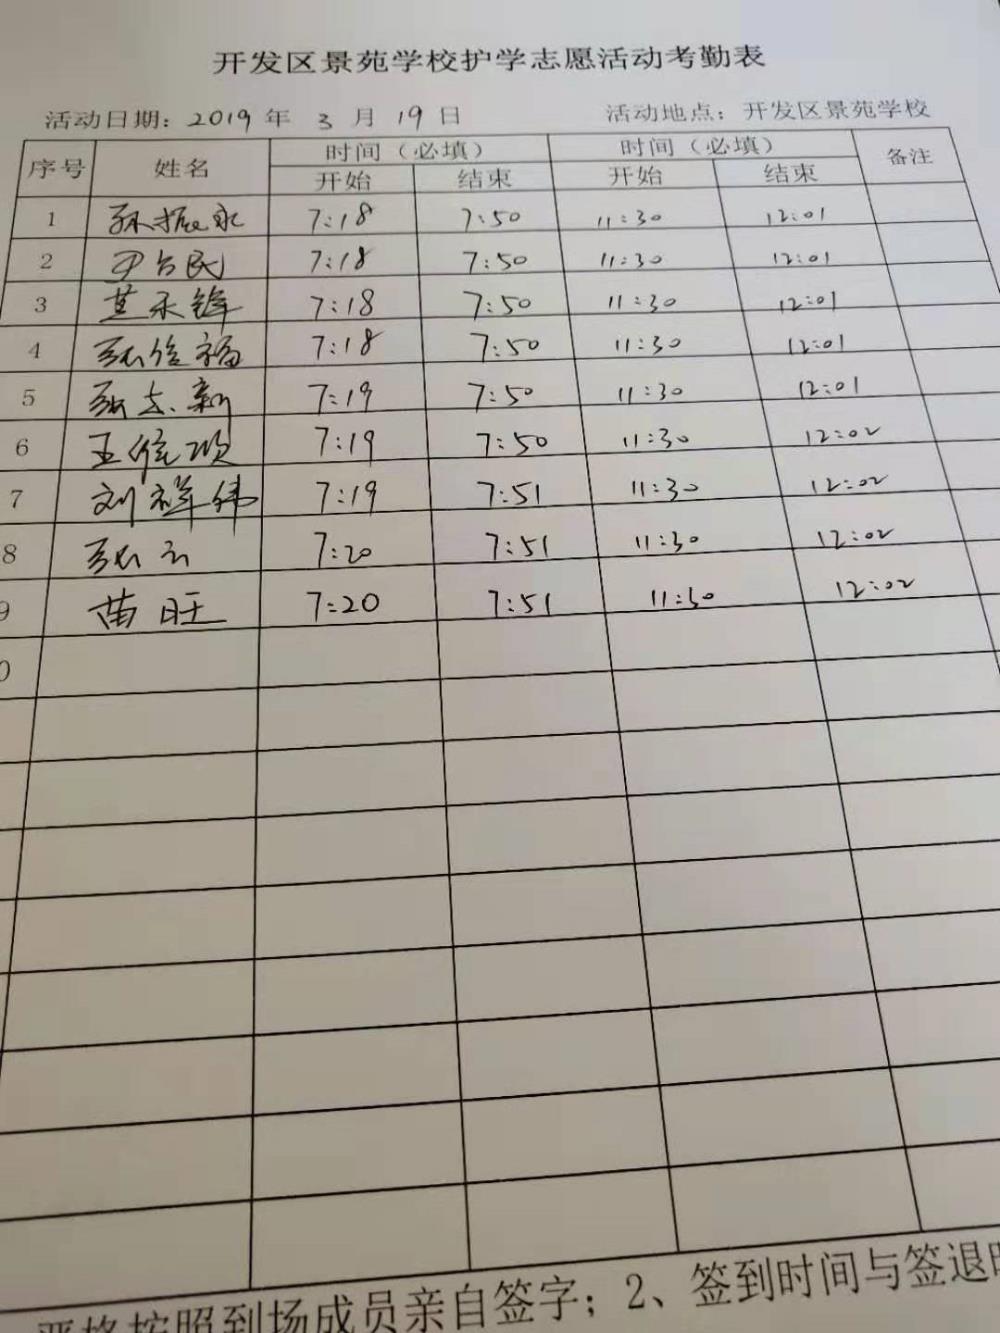 开发区景苑学校护学志愿活动考勤表
活动日期：2019 年 3 月 19 日 活动地点：开发区景苑学校
序号 姓名 时间（必填） 时间（必填） 备注
开始 结束 开始 结束
1 孙振永 7:18 7:50 11:30 12:01
2 尹台民 7:18 7:50 11:30 12:01
3 黄永锋 7:18 7:50 11:30 12:01
4 张俊福 7:18 7:50 11:30 12:01
5 张志新 7:19 7:50 11:30 12:01
6 王俊 7:19 7:50 11:30 12:02
7 刘祥伟 7:19 7:51 11:30 12:02
8 张云 7:20 7:51 11:30 12:02
9 苗旺 7:20 7:51 11:30 12:02
0
严格按照到场成员亲自签字；2、签到时间与签退时